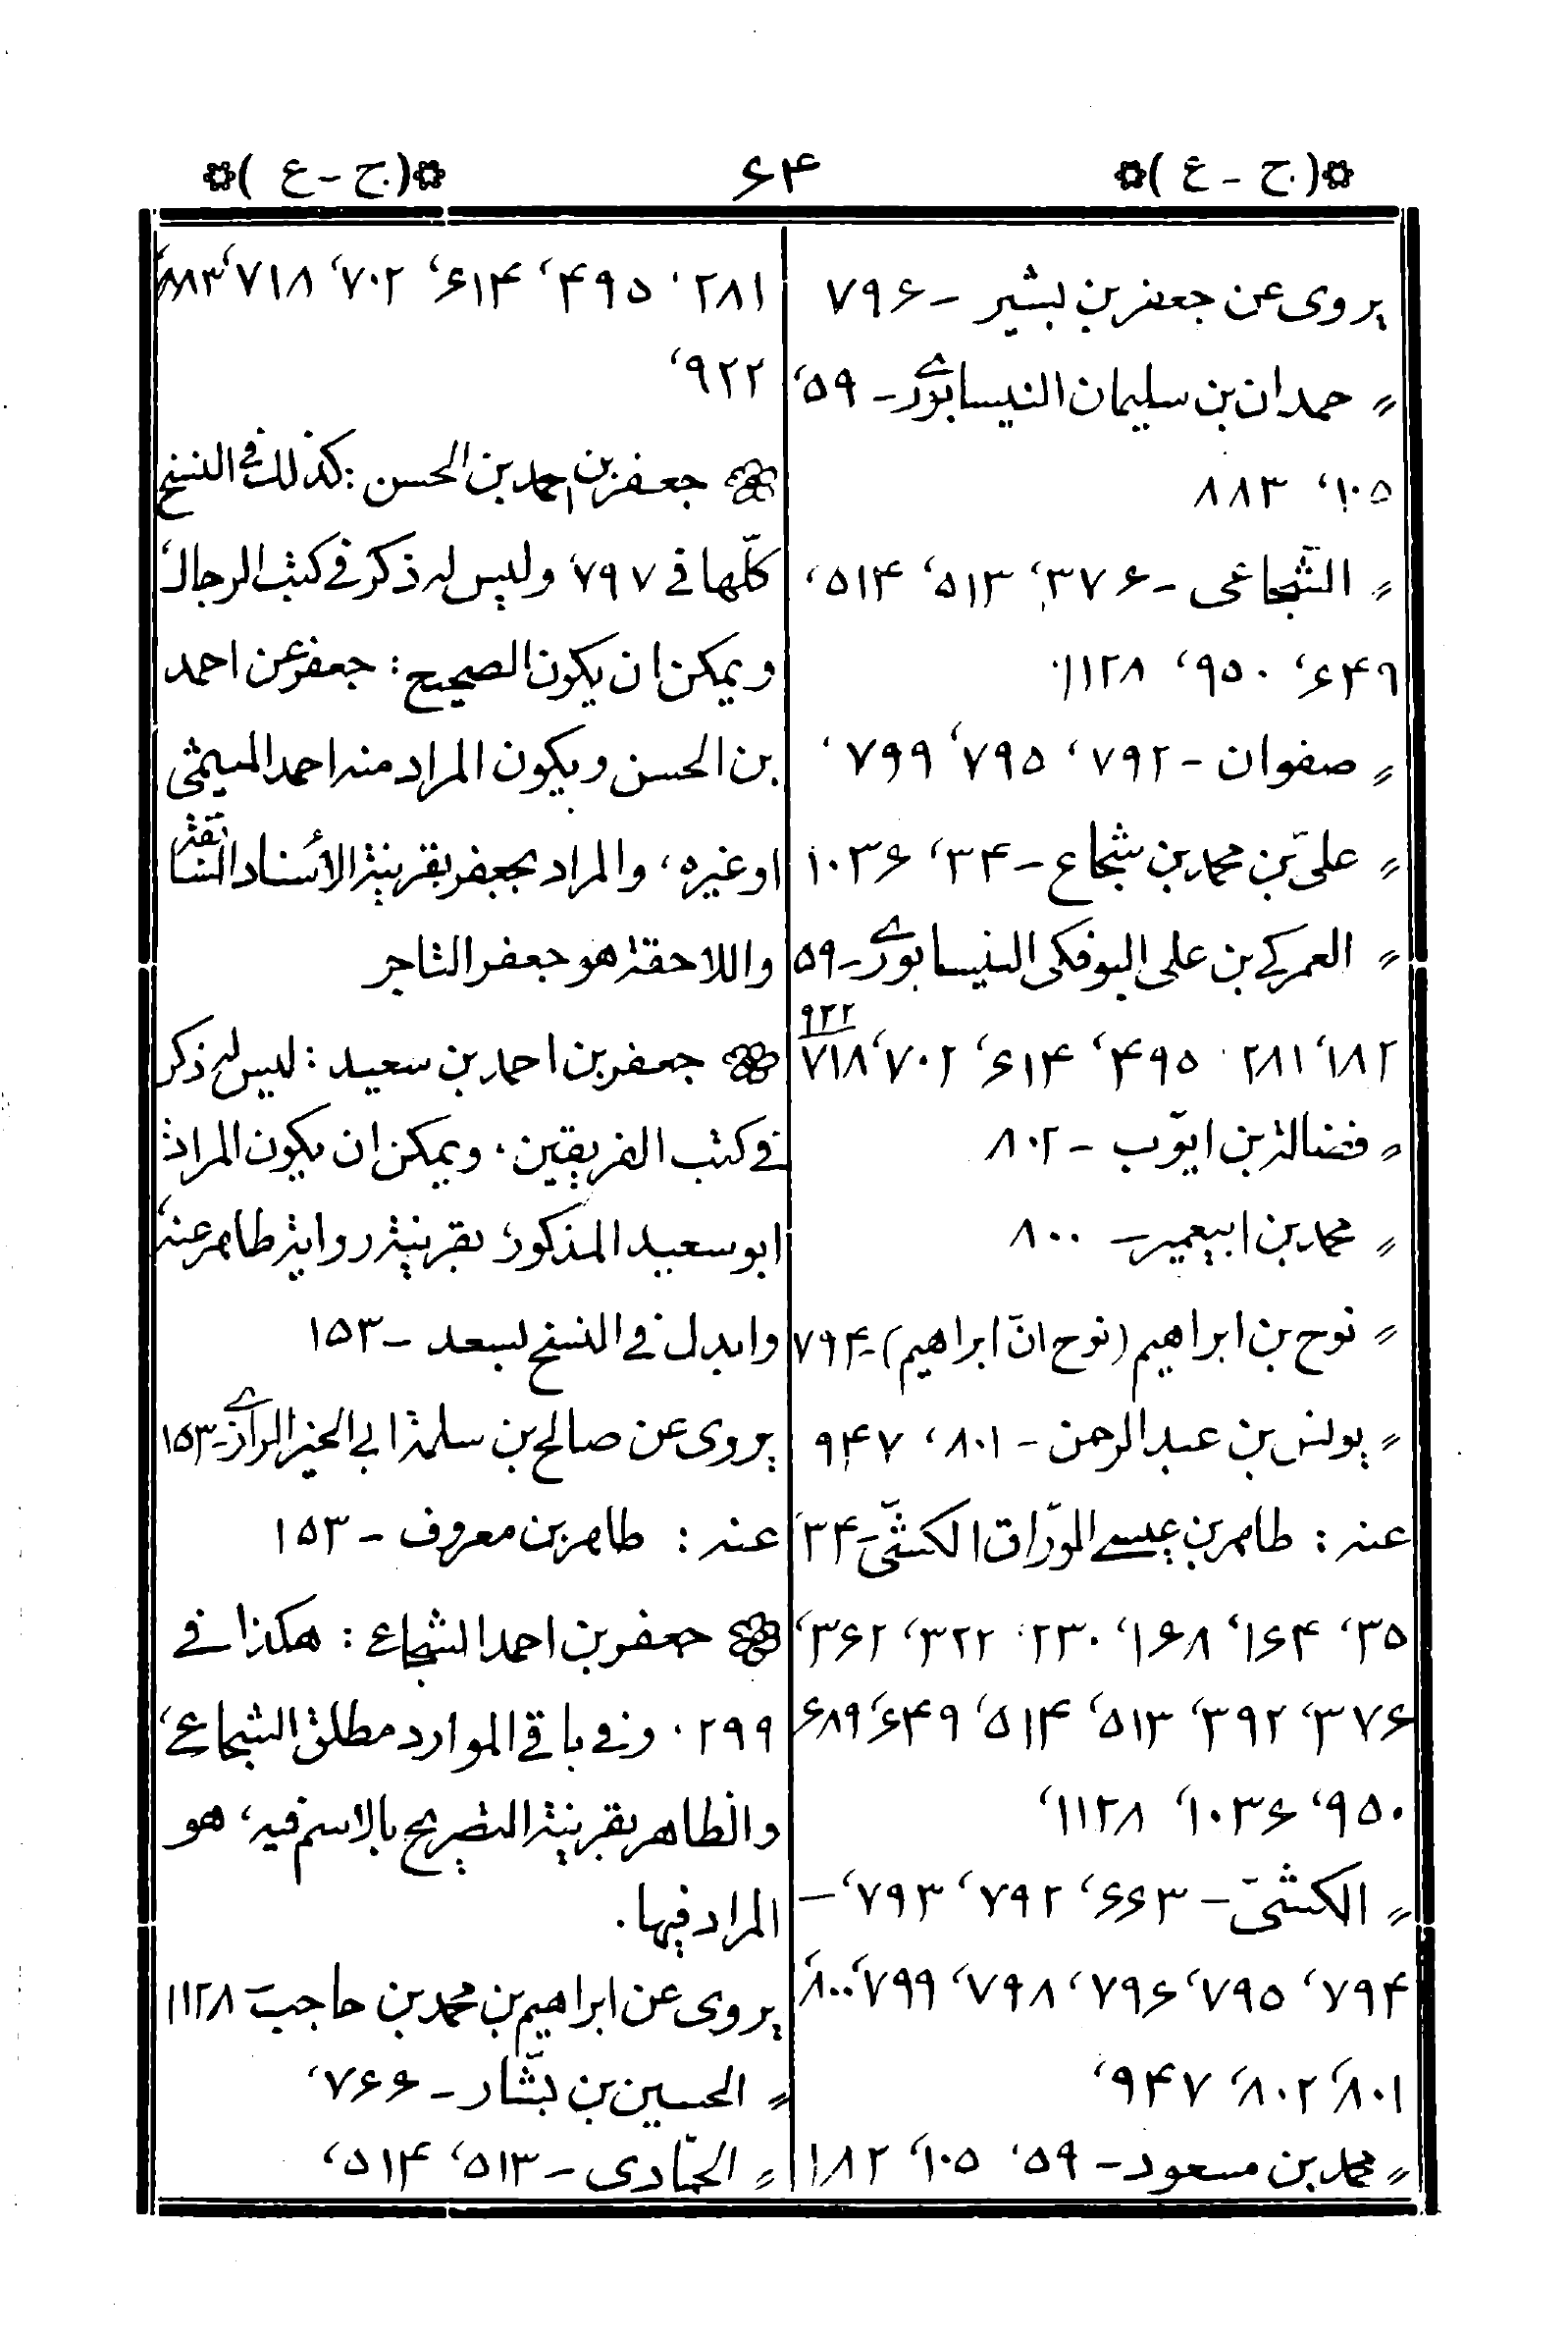 ❁( ج - ع )❁ ۶۴ ❁( ج - ع )❁
یروی عن جعفر بن بشیر - ۷۹۶
〃 حمدان بن سلیمان النیسابوری - ۵۹،
۱۰۵، ۸۸۳
〃 الشّجاعی - ۳۷۶، ۵۱۳، ۵۱۴،
۶۴۹، ۹۵۰، ۱۱۲۸
〃 صفوان - ۷۹۲، ۷۹۵، ۷۹۹،
〃 علیّ بن محمد بن شجاع - ۳۴، ۱۰۳۶
〃 العمرکی بن علی البوفکی النیسابوری - ۵۹
۱۸۲، ۲۸۱، ۴۹۵، ۶۱۴، ۷۰۲، ۷۱۸ ۹۲۲
〃 فضالة بن ایّوب - ۸۰۲
〃 محمد بن ابیعمیر - ۸۰۰
〃 نوح بن ابراهیم (نوح انّ ابراهیم) - ۷۹۴
〃 یونس بن عبدالرحمن - ۸۰۱، ۹۴۷
عنه : طاهر بن عیسی الورّاق الکشّی - ۳۴،
۳۵، ۱۶۴، ۱۶۸، ۲۳۰، ۳۲۲، ۳۶۲،
۳۷۶، ۳۹۲، ۵۱۳، ۵۱۴، ۶۴۹، ۶۸۹
۹۵۰، ۱۰۳۶، ۱۱۲۸،
〃 الکشّیّ - ۶۶۳، ۷۹۲، ۷۹۳، -
۷۹۴، ۷۹۵، ۷۹۶، ۷۹۸، ۷۹۹، ۸۰۰،
۸۰۱، ۸۰۲، ۹۴۷،
〃 محمد بن مسعود - ۵۹، ۱۰۵، ۱۸۲
۲۸۱، ۴۹۵، ۶۱۴، ۷۰۲، ۷۱۸، ۸۸۳،
۹۲۲،
❁ جعفر بن احمد بن الحسن : کذلک فی النسخ
کلّها فی ۷۹۷، ولیس له ذکر فی کتب الرجال،
ویمکن ان یکون الصحیح : جعفر عن احمد
بن الحسن ویکون المراد منه احمد المیثمی
او غیره، والمراد بجعفر بقرینة الأسناد السابقة
واللاحقة هو جعفر التاجر
❁ جعفر بن احمد بن سعید : لیس له ذکر
فی کتب الفریقین، ویمکن ان یکون المراد :
ابوسعید المذکور، بقرینة روایة طاهر عنه،
وابدل فی النسخ بسعد - ۱۵۳
یروی عن صالح بن سلمة ابی الخیر الرازی - ۱۵۳
عنه : طاهر بن معروف - ۱۵۳
❁ جعفر بن احمد الشجاعی : هکذا فی
۲۹۹، وفی باقی الموارد مطلق الشجاعی،
والظاهر بقرینة التصریح بالاسم فیه، هو
المراد فیها.
یروی عن ابراهیم بن محمد بن حاجب - ۱۱۲۸
〃 الحسین بن بشّار - ۷۶۶،
〃 الحمّادی - ۵۱۳، ۵۱۴،